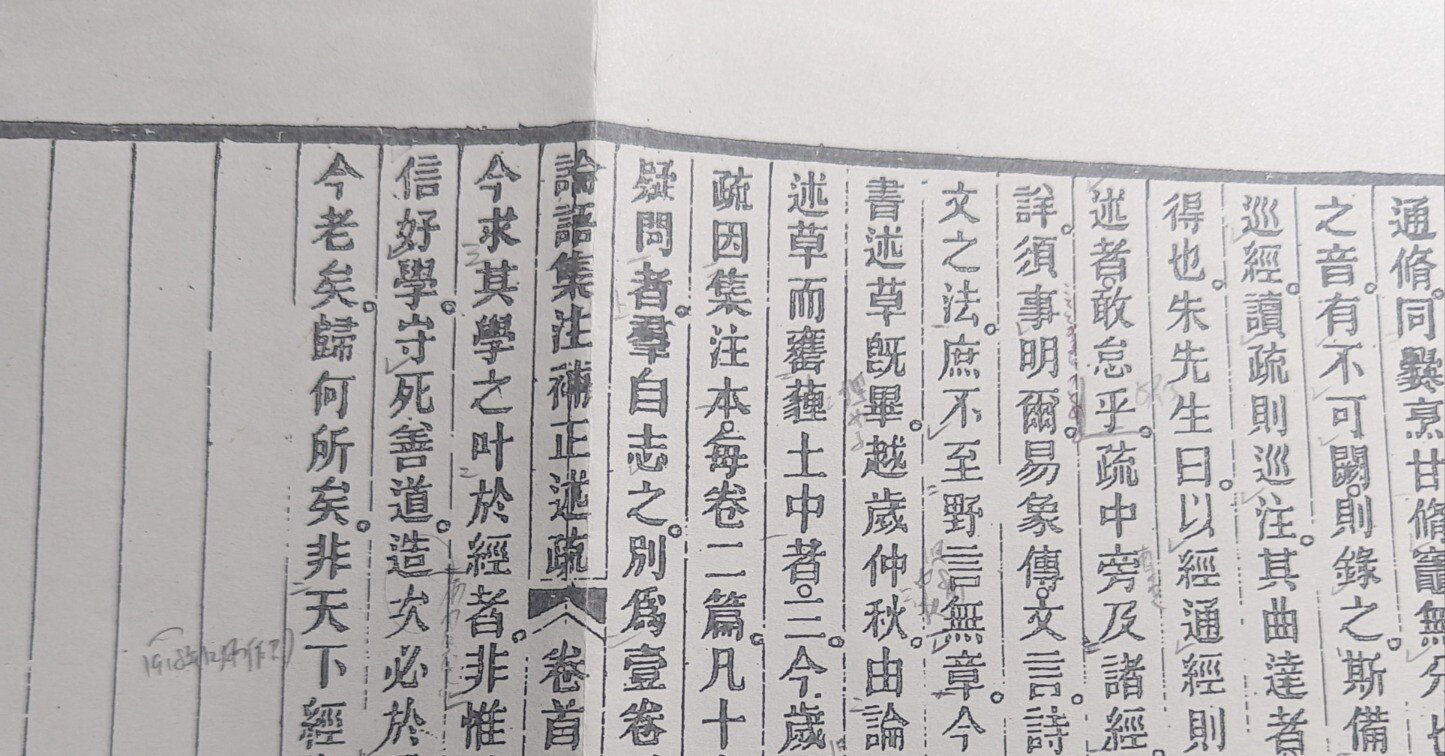 通脩。同爨烹甘脩竈無分
之音。有不可闕。則錄之。斯備
巡經。讀疏則巡注。其曲達者
得也。朱先生曰。以經通經則
述者。敢怠乎。疏中旁及諸經
詳。須事明爾。易象傳。文言。詩
文之法。庶不至野言無章。今
書述草既畢。越歲仲秋。由論
述草而罋蘕土中者。三。今歲
疏因集注本。每卷二篇。凡十
疑問者。羣自志之。別爲壹卷
論語集注補正述疏 卷首
今求其學之叶於經者。非惟
信好學。守死善道。造次必於
今老矣。歸何所矣。非天下經